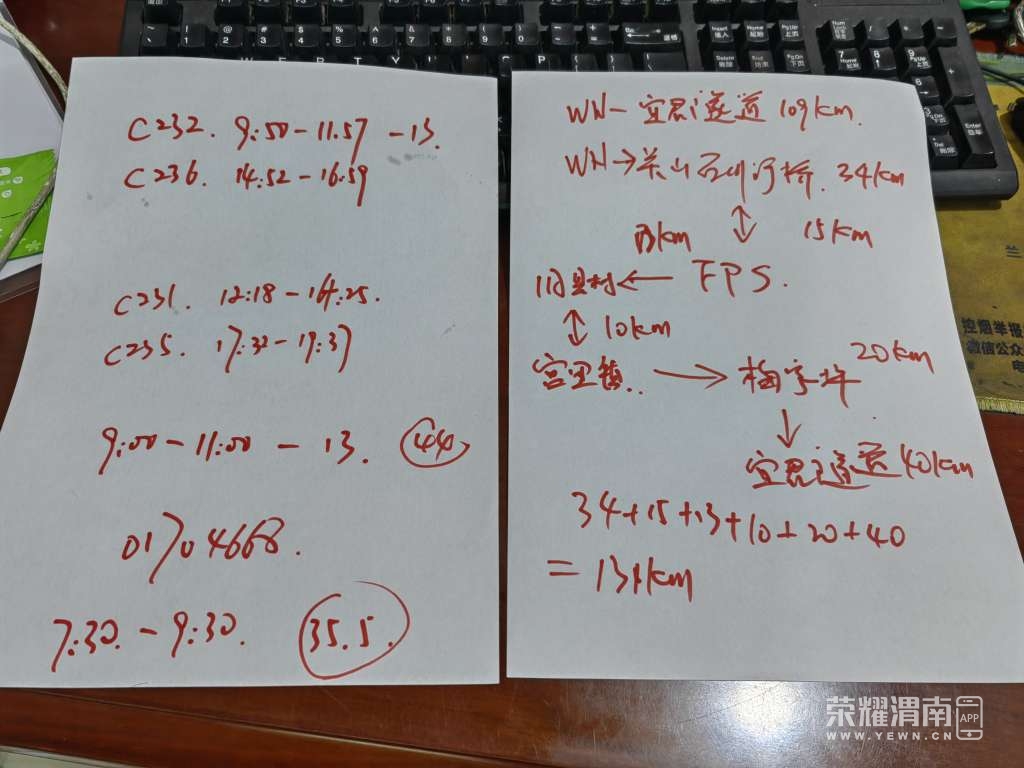 C232. 9:50-11:57 -13.
C236. 14:52-16:59
C231. 12:18-14:25.
C235. 17:32-19:37
9:00-11:00-13. 44
01704668.
7:30.-9:30. 35.5.
WN-宜君隧道 109km.
WN→关山石川河桥. 34km
13km 15km
闫良村←FPS.
10km
宫里镇.→梅家坪 20km
宜君隧道 40km
34+15+13+10+20+40
=131km
控烟举报
微信公众
电
兰
荣耀渭南 APP
WWW.YEWN.CN